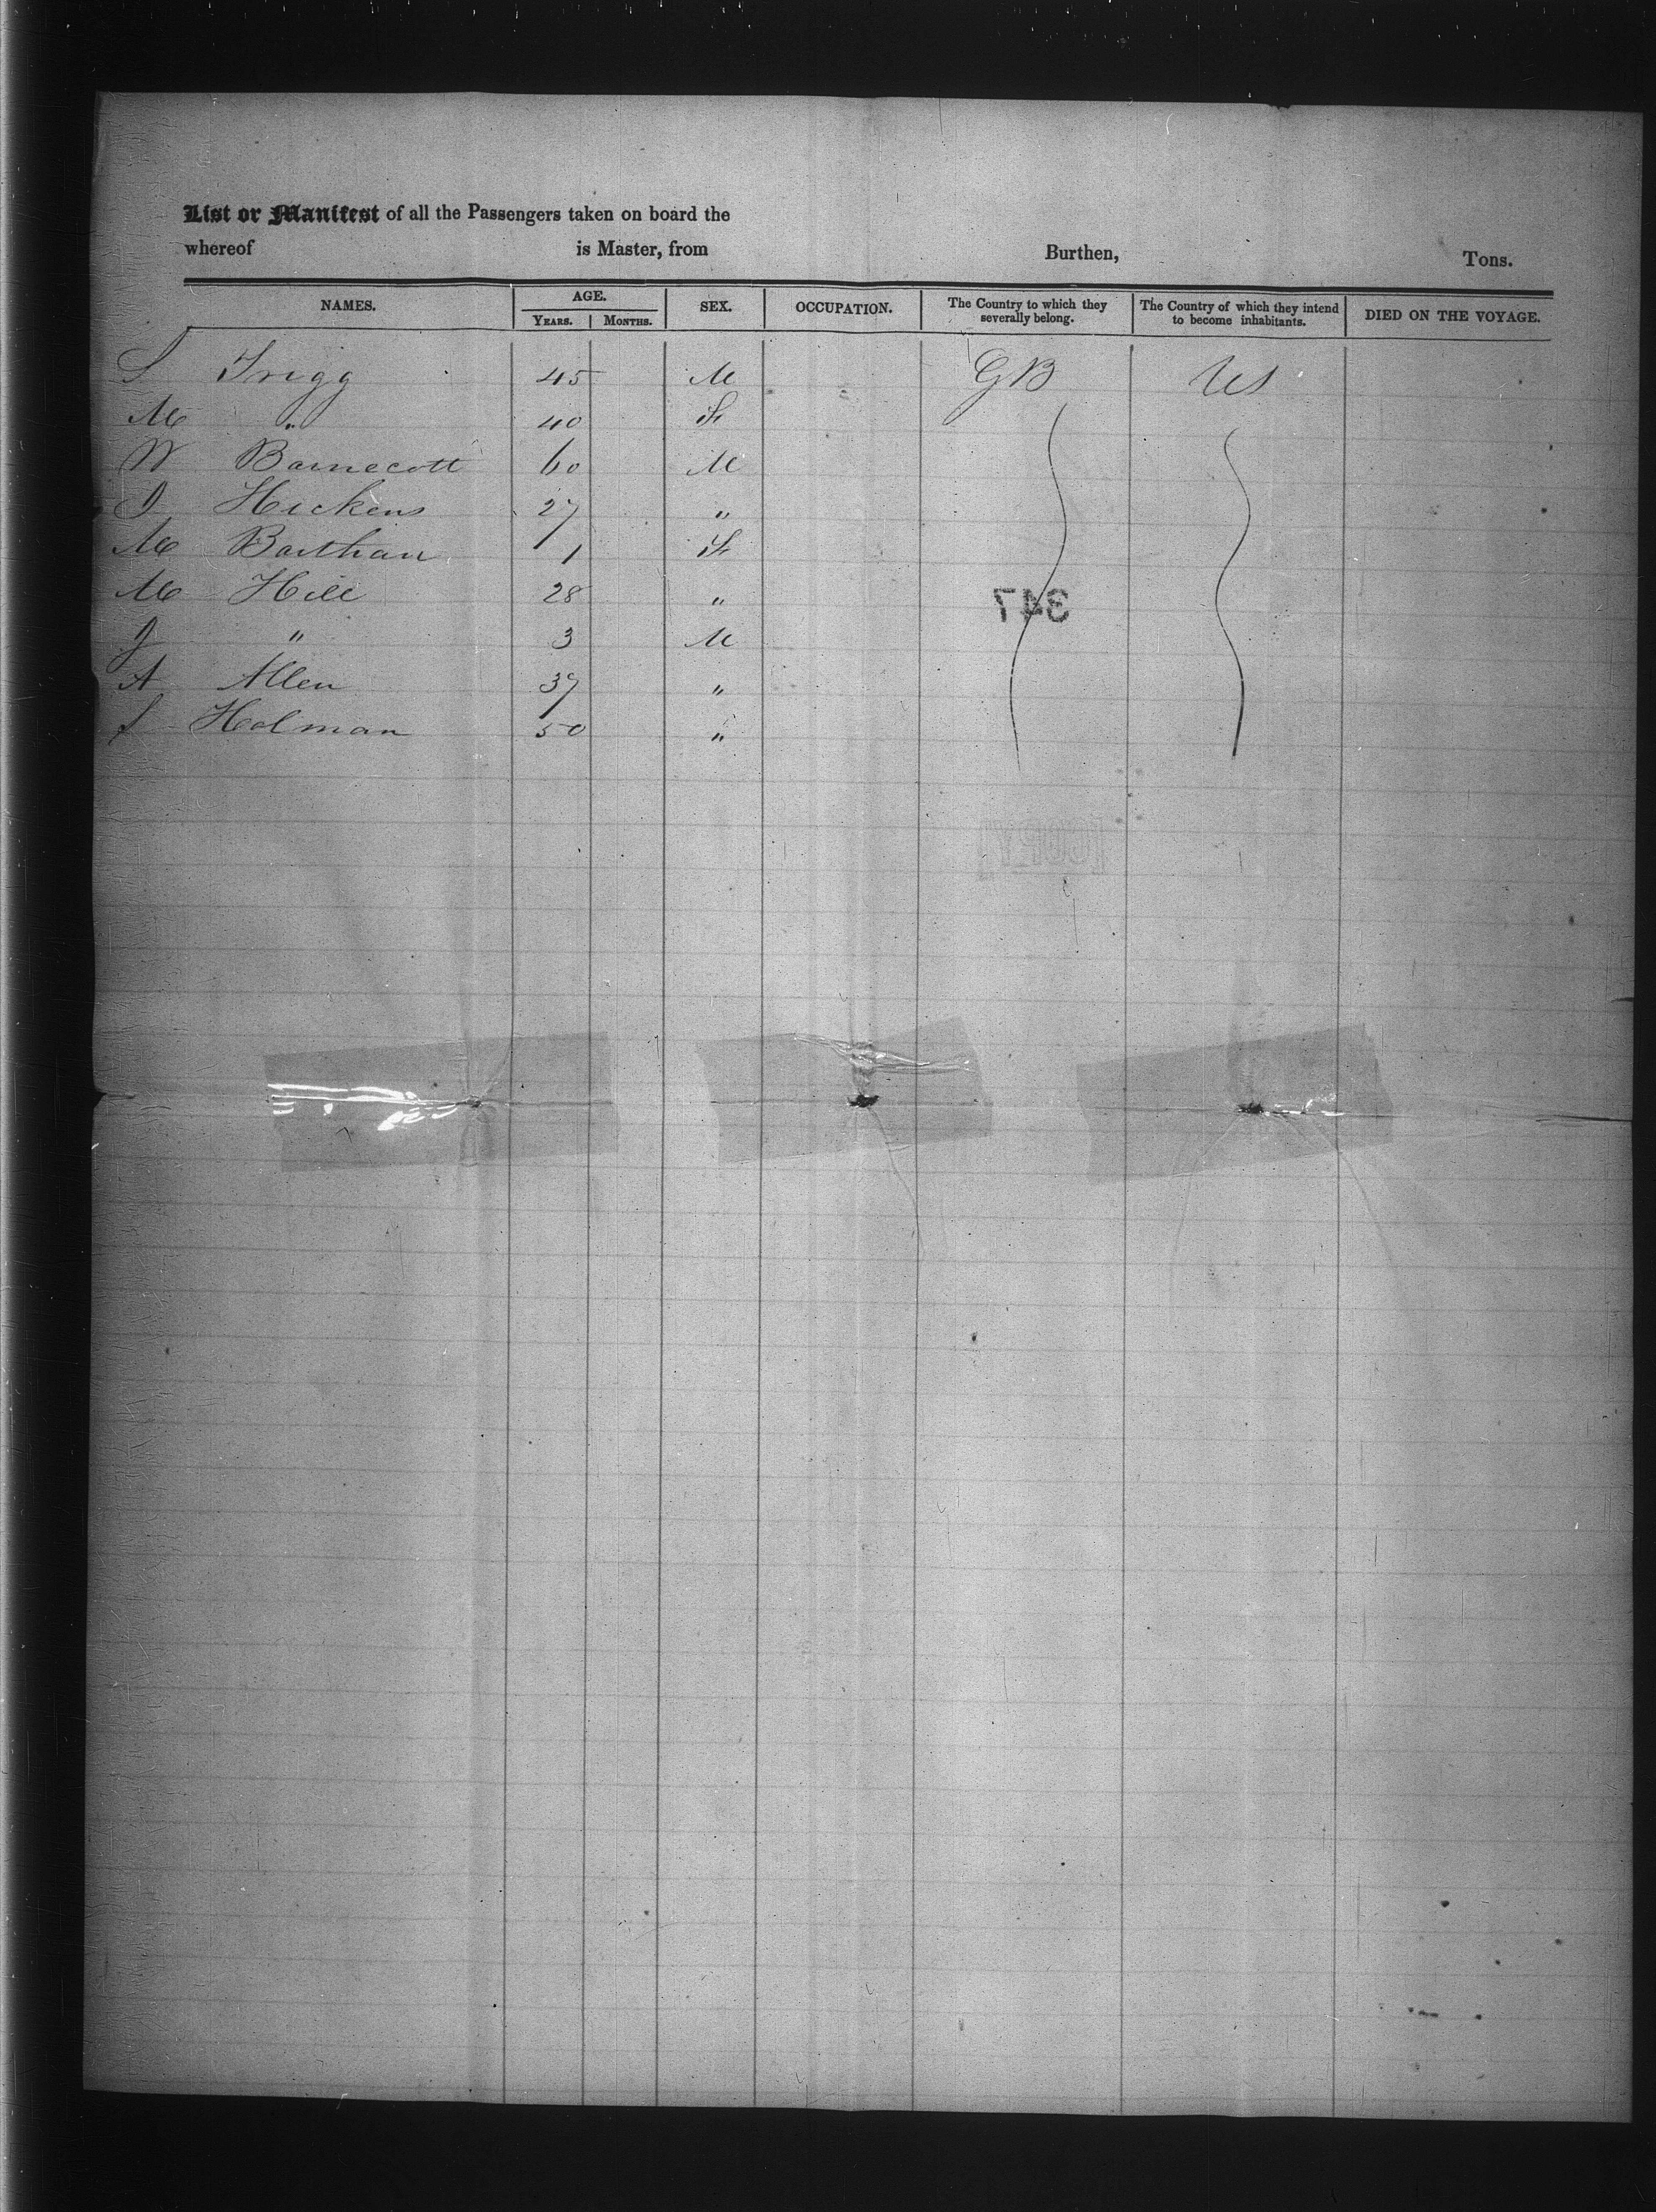 List or Manifest of all the Passengers taken on board the
whereof is Master, from Burthen, Tons.
NAMES. AGE. YEARS. MONTHS. SEX. OCCUPATION. The Country to which they severally belong. The Country of which they intend to become inhabitants. DIED ON THE VOYAGE.
S Trigg 45 M GB US
M " 40 F
W Barnecott 60 M
J Hickens 27 "
M Barthan 1 F
M Hill 28 "
J " 3 M
A Allen 37 "
S Holman 50 "
347
COPY